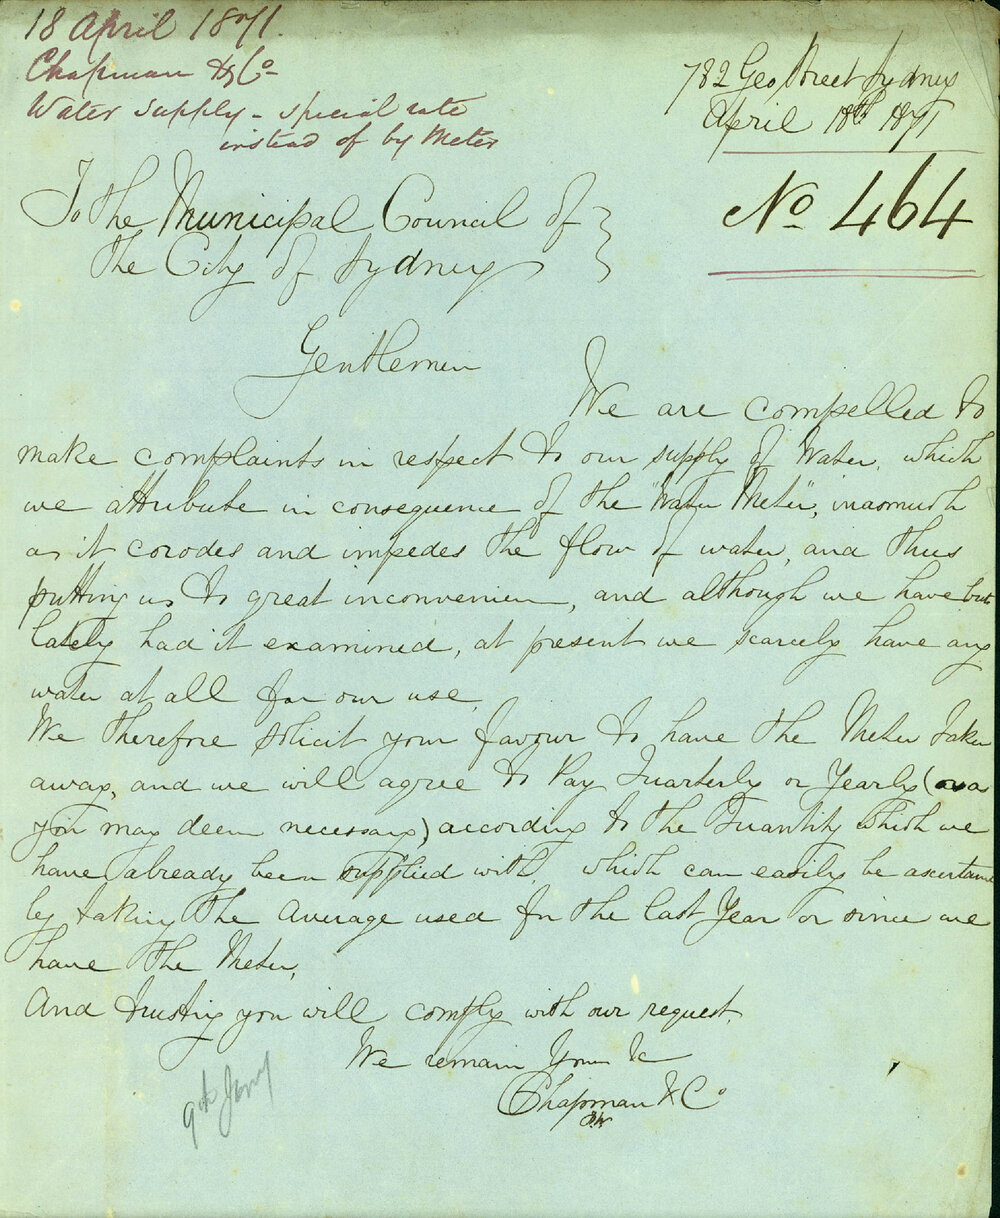 18 April 1871.
Chapman & Co
Water Supply - special rate
instead of by Meter
782 Geo Street Sydney
April 18th 1871
No 464
To the Municipal Council of
the City of Sydney
Gentlemen
We are compelled to
make complaints in respect to our supply of Water, which
we attribute in consequence of the "Water Meter", inasmuch
as it corodes and impedes the flow of water, and thus
putting us to great inconvenience, and although we have but
lately had it examined, at present we scarcely have any
water at all for our use,
We therefore solicit your favour to have the Meter taken
away, and we will agree to Pay Quarterly or Yearly (as
you may deem necessary) according to the Quantity which we
have already been supplied with, which can easily be ascertained
by taking the Average used for the last Year or since we
have the Meter,
And trusting you will comply with our request.
We remain Yours &c
Chapman & Co
9th Jany